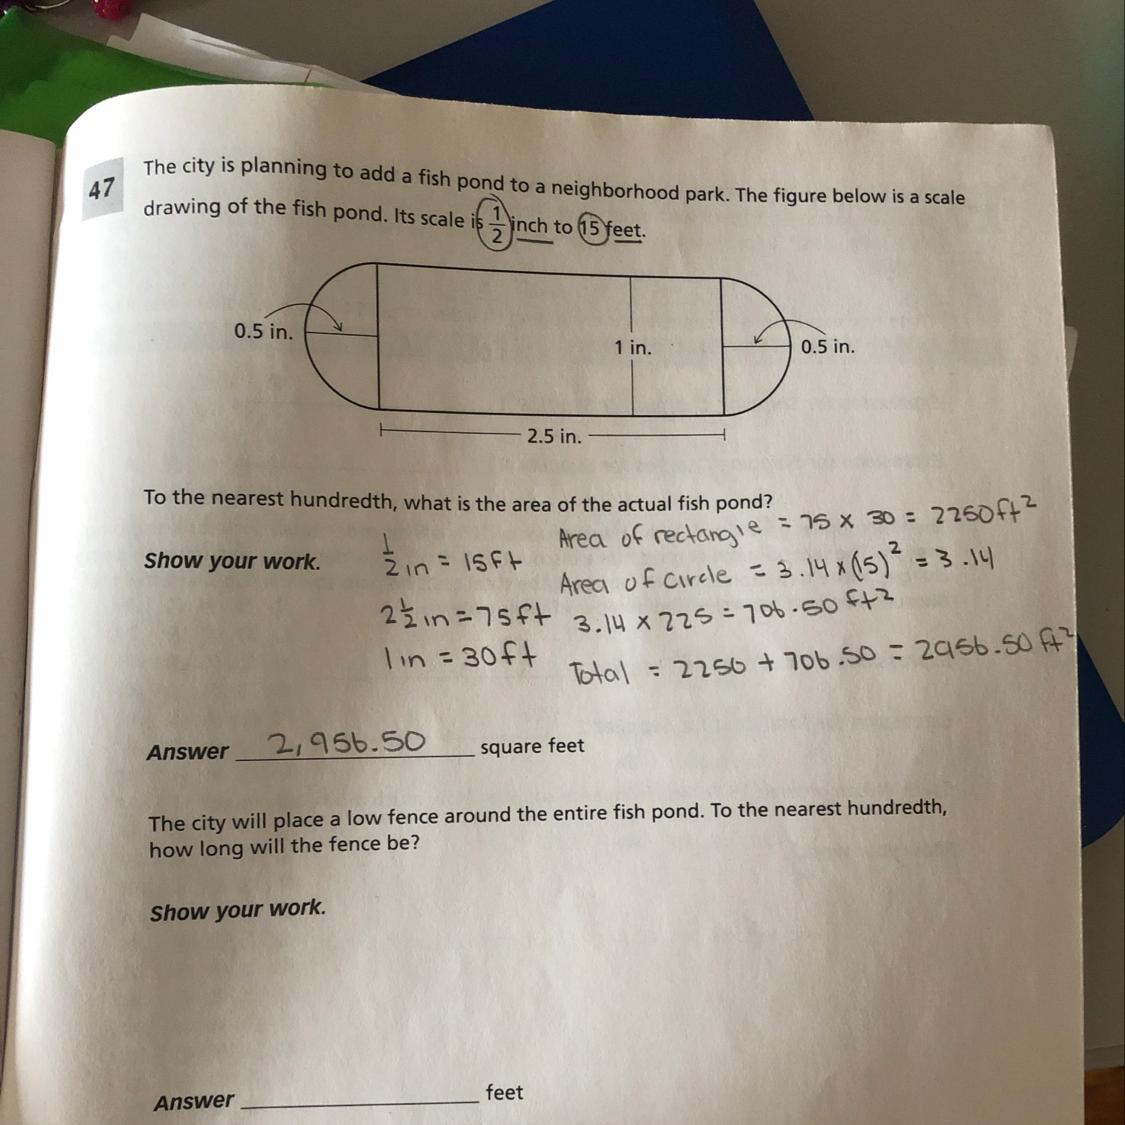 47
The city is planning to add a fish pond to a neighborhood park. The figure below is a scale
drawing of the fish pond. Its scale is 1/2 inch to 15 feet.
0.5 in.
1 in.
0.5 in.
2.5 in.
To the nearest hundredth, what is the area of the actual fish pond?
Show your work.
1/2 in = 15ft
2 1/2 in = 75ft
1 in = 30ft
Area of rectangle = 75 x 30 = 2250ft²
Area of circle = 3.14 x (15)² = 3.14
3.14 x 225 = 706.50 ft²
Total = 2250 + 706.50 = 2956.50 ft²
Answer 2,956.50 square feet
The city will place a low fence around the entire fish pond. To the nearest hundredth,
how long will the fence be?
Show your work.
Answer feet